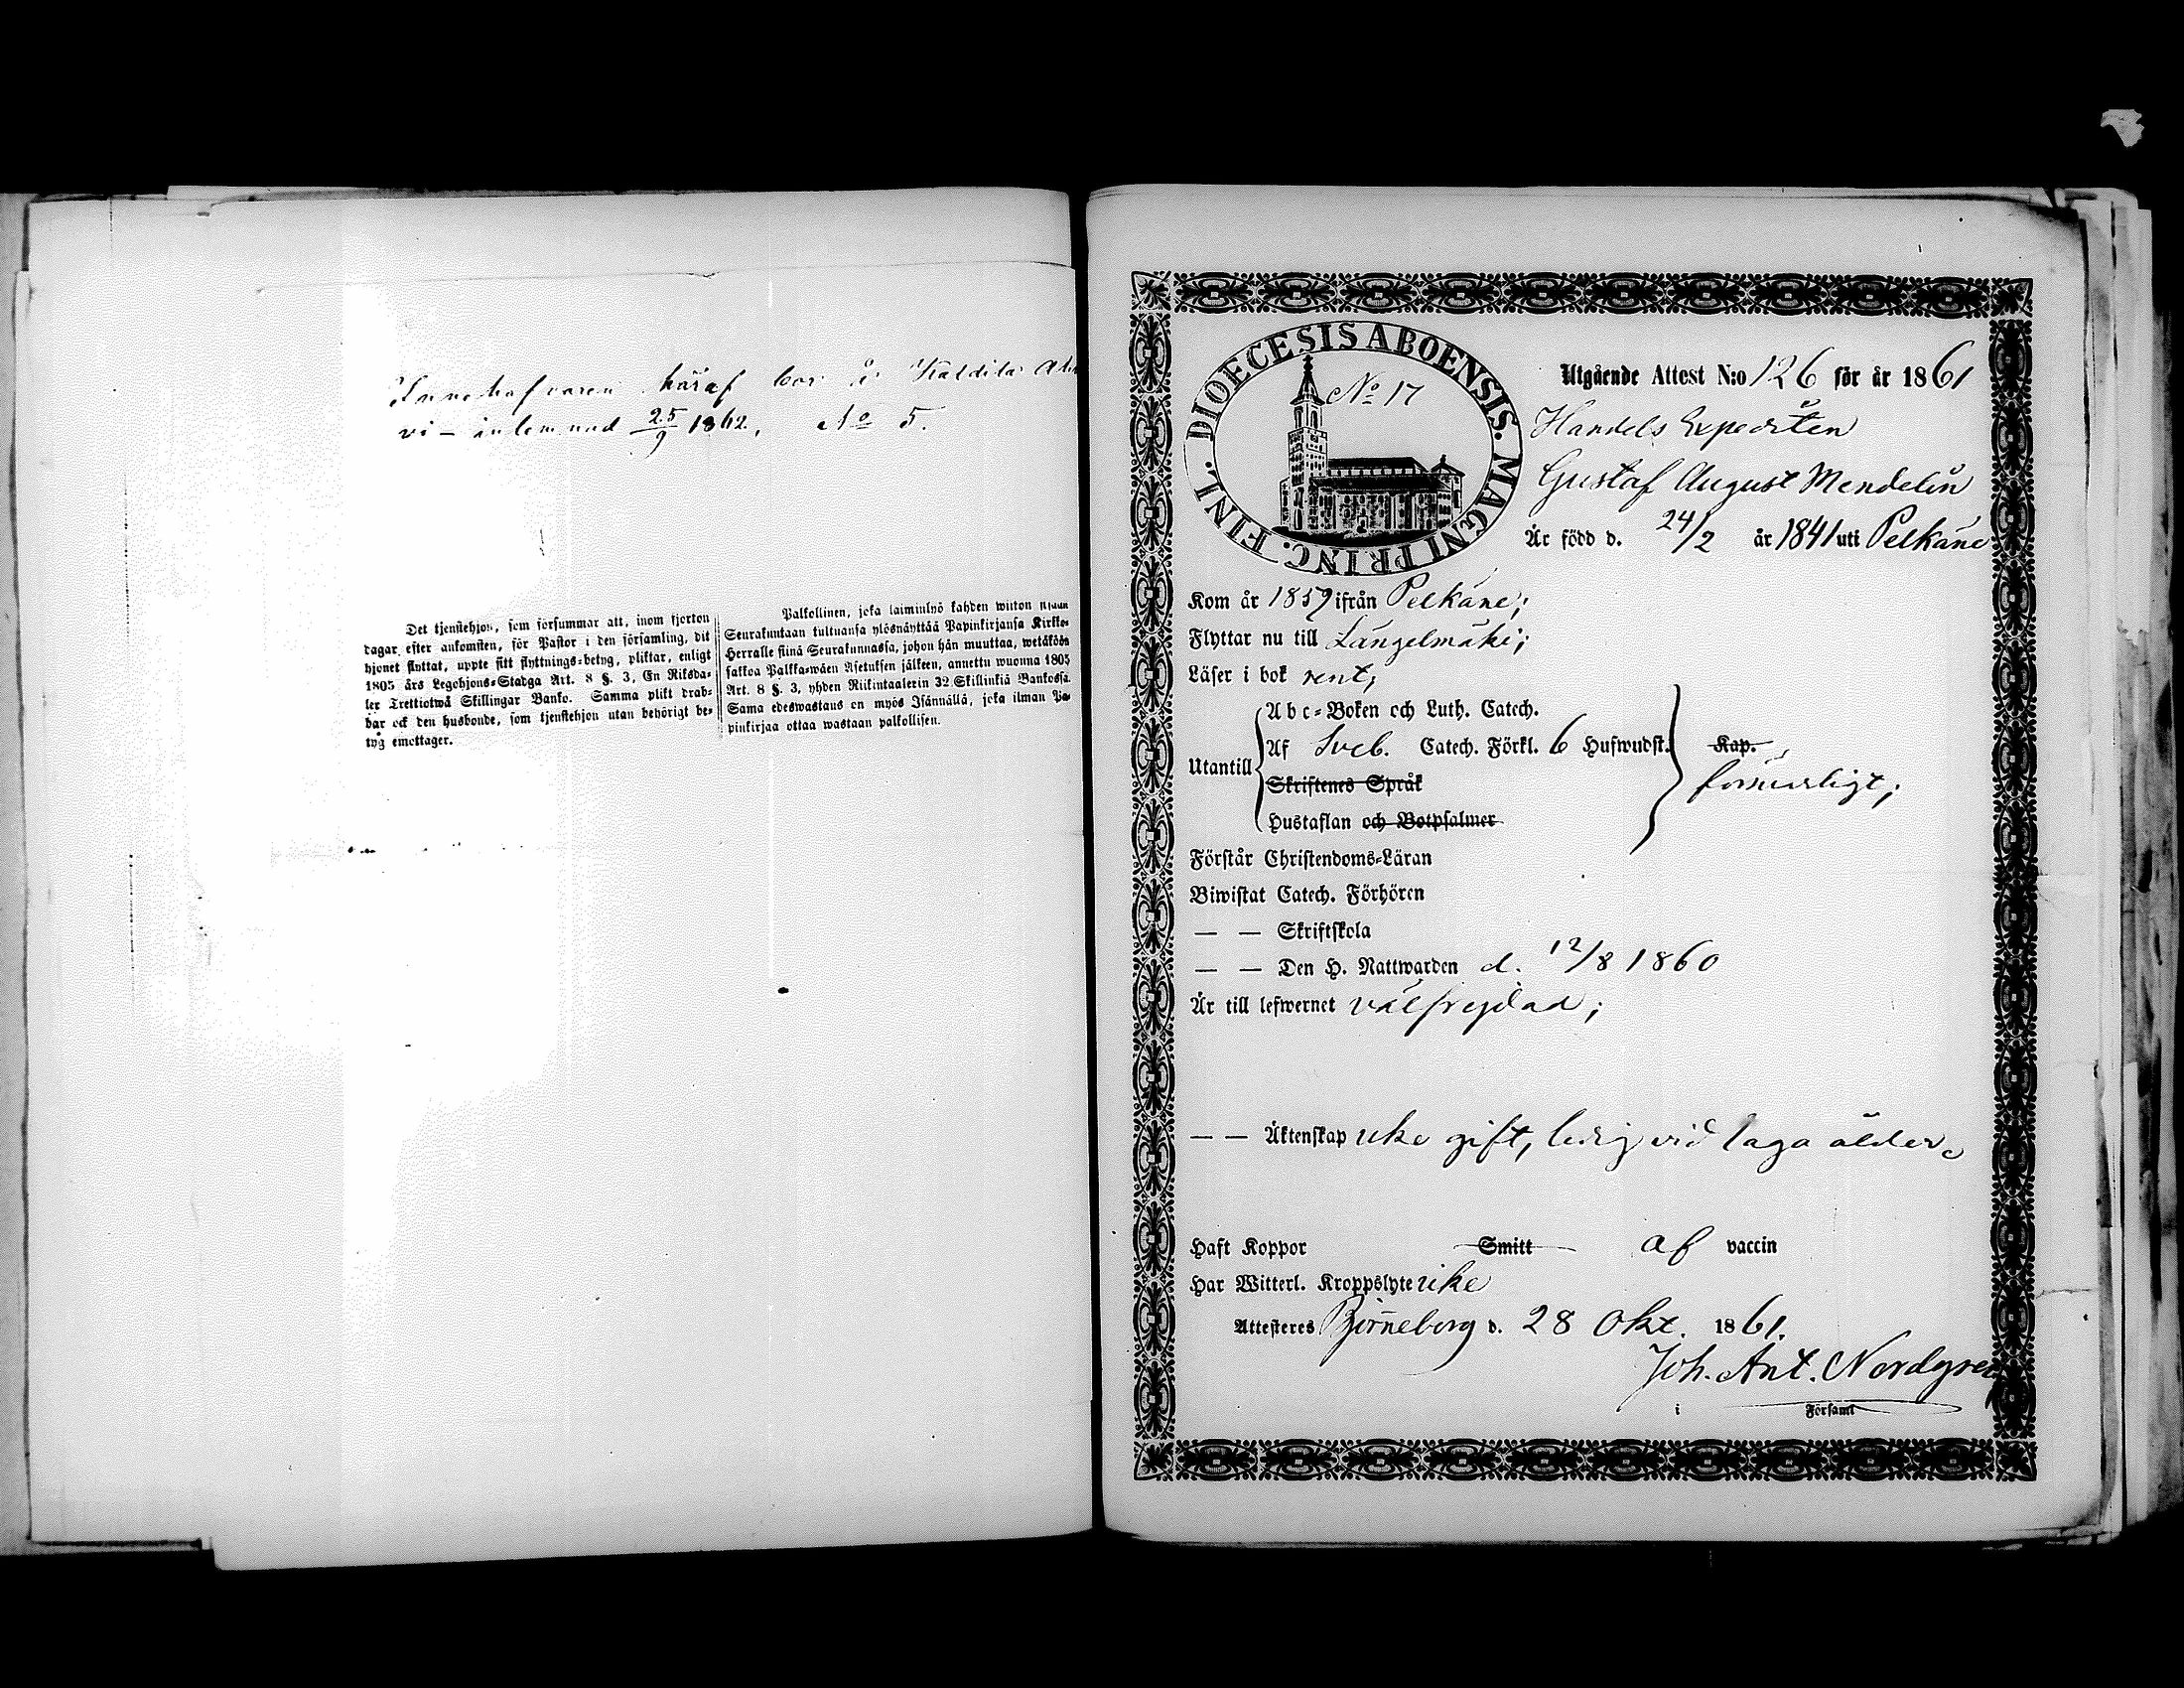 Innehafvaren häraf bor å Kaldila
vi – inlemnad 25/9 1862, No 5.
Det tjenstehjon, som försummar att, inom fjorton
dagar efter ankomsten, för Pastor i den församling, dit
hjonet flyttat, uppte sitt flyttnings=betyg, pliktar, enligt
1805 års Legohjons=Stadga Art. 8 §. 3, En Riksda=
ler Trettiotwå Skillingar Banko. Samma plikt drab=
bar ock den husbonde, som tjenstehjon utan behörigt be=
tyg emottager.
Palkollinen, joka laiminlyö kahden wiikon
Seurakuntaan tultuansa ylösnäyttää Papinkirjansa Kirkko=
Herralle siinä Seurakunnassa, johon hän muuttaa, wetäköön
sakkoa Palkka=wäen Asetuksen jälkeen, annettu wuonna 1805
Art. 8 §. 3, yhden Riikintaalerin 32 Skillinkiä Bankossa.
Sama edeswastaus on myös Isännällä, joka ilman Pa=
pinkirjaa ottaa wastaan palkollisen.
DIOECESIS ABOENSIS. MAGNI PRINC. FINL.
No 17
Utgående Attest N:o 126 för år 1861
Handels Expediten
Gustaf August Mendelin
Är född d. 24/2 år 1841 uti Pelkäne
Kom år 1859 ifrån Pelkäne;
Flyttar nu till Längelmäki;
Läser i bok rent;
Abc=Boken och Luth. Catech.
Utantill
Af Sveb. Catech. Förkl. 6 Hufwudst. Kap.
Skriftenes Språk
försvarligt;
Hustaflan och Botpsalmer
Förstår Christendoms=Läran
Biwistat Catech. Förhören
— — Skriftskola
— — Den H. Nattwarden d. 12/8 1860
Är till lefwernet välfrejdad;
— — Äktenskap icke gift, ledig vid laga ålder.
Haft Koppor Smitt af vaccin
Har Witterl. Kroppslyte icke
Attesteres Björneborg d. 28 Okt. 1861.
Joh. Ant. Nordgren
i Församl